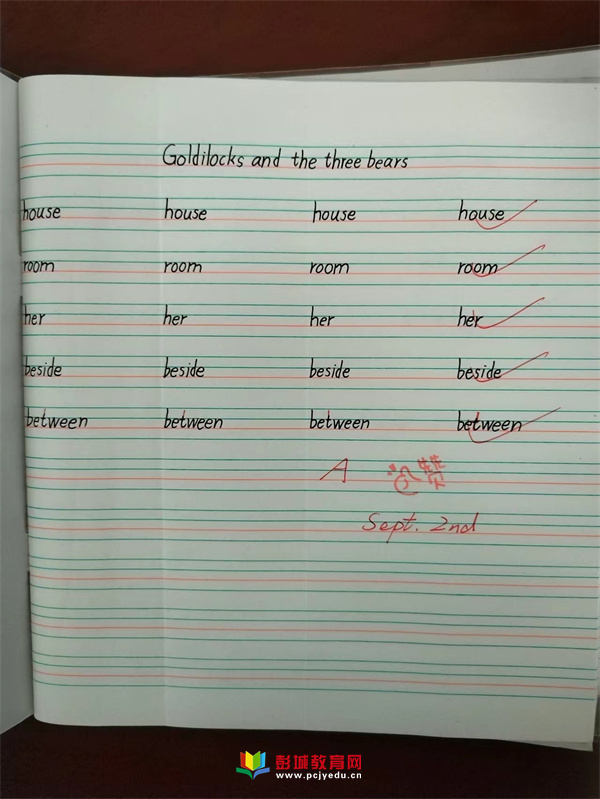 Goldilocks and the three bears
house house house house
room room room room
her her her her
beside beside beside beside
between between between between
A 赞
Sept. 2nd
彭城教育网
www.pcjyedu.cn